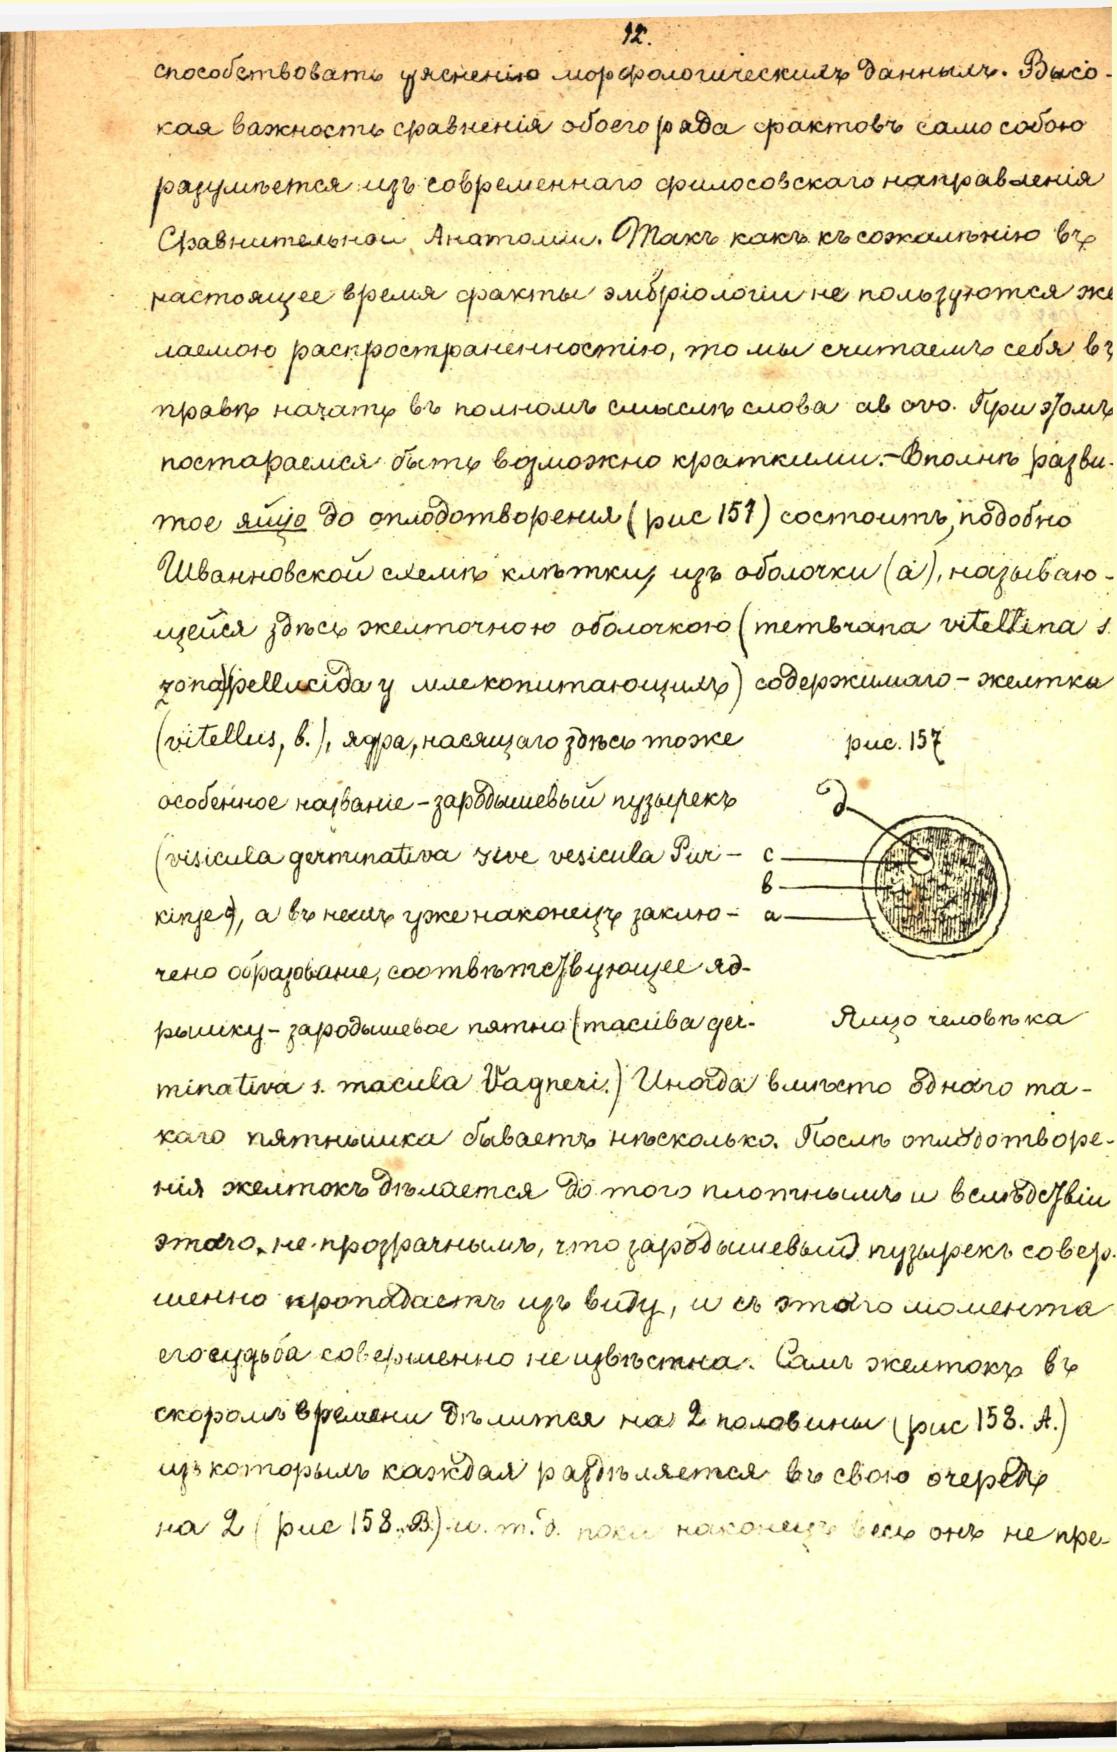 12.
способствовать уясненію морфологическихъ данныхъ. Высо-
кая важность сравненія обоего рода фактовъ само собою
разумѣется изъ современнаго филосовскаго направленія
Сравнительной Анатоміи. Такъ какъ къ сожалѣнію въ
настоящее время факты эмбріологіи не пользуются же
лаемою распространенностію, то мы считаемъ себя въ
правѣ начать въ полномъ смыслѣ слова ab ovo. При этомъ
постараемся быть возможно краткими. – Вполнѣ разви-
тое яйцо до оплодотворенія (рис 157) состоитъ, подобно
Шванновской схемѣ клѣтки, изъ оболочки (а), называю-
щейся здѣсь желточною оболочкою (membrana vitellina s.
zona pellucida у млекопитающихъ) содержимаго – желтка
(vitellus, в.), ядра, насящаго здѣсь тоже
рис. 157
особенное названіе – зародышевый пузырекъ
д
(visicula germinativa sive vesicula Pur-
с
в
kinje), а въ немъ уже наконецъ заклю-
а
чено образованіе, соотвѣтствующее яд-
рышку – зародышевое пятно (macuba ger-
Яицо человѣка
minativa s. macula Vagneri.) Иногда вмѣсто одного та-
каго пятнышка бываетъ нѣсколько. Послѣ оплодотворе-
нія желтокъ дѣлается до того плотнымъ и вслѣдствіи
этого не прозрачнымъ, что зародышевый пузырекъ совер-
шенно пропадаетъ изъ виду, и съ этого момента
его судьба совершенно неизвѣстна. Самъ желтокъ въ
скоромъ времени дѣлится на 2 половины (рис 158. А.)
изъ которыхъ каждая раздѣляется въ свою очередь
на 2 (рис 158. В) и. т. д. пока наконецъ весь онъ не пре-